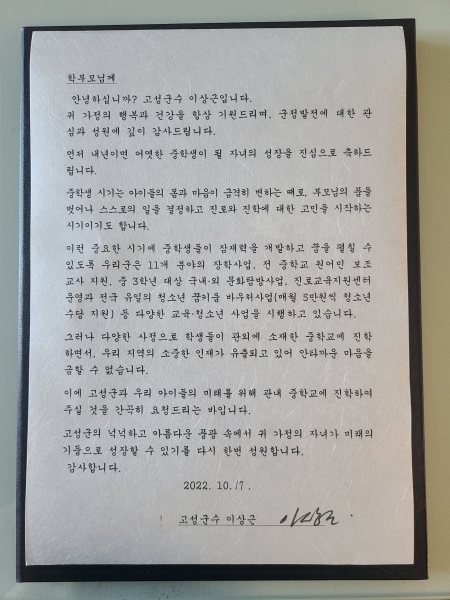 학부모님께
안녕하십니까? 고성군수 이상근입니다.
귀 가정의 행복과 건강을 항상 기원드리며, 군정발전에 대한 관
심과 성원에 깊이 감사드립니다.
먼저 내년이면 어엿한 중학생이 될 자녀의 성장을 진심으로 축하드
립니다.
중학생 시기는 아이들의 몸과 마음이 급격히 변하는 때로, 부모님의 품을
벗어나 스스로의 일을 결정하고 진로와 진학에 대한 고민을 시작하는
시기이기도 합니다.
이런 중요한 시기에 중학생들이 잠재력을 개발하고 꿈을 펼칠 수
있도록 우리군은 11개 분야의 장학사업, 전 중학교 원어민 보조
교사 지원, 중 3학년 대상 국내·외 문화탐방사업, 진로교육지원센터
운영과 전국 유일의 청소년 꿈키움 바우처사업(매월 5만원씩 청소년
수당 지원) 등 다양한 교육·청소년 사업을 시행하고 있습니다.
그러나 다양한 사정으로 학생들이 관외에 소재한 중학교에 진학
하면서, 우리 지역의 소중한 인재가 유출되고 있어 안타까운 마음을
금할 수 없습니다.
이에 고성군과 우리 아이들의 미래를 위해 관내 중학교에 진학하여
주실 것을 간곡히 요청드리는 바입니다.
고성군의 넉넉하고 아름다운 풍광 속에서 귀 가정의 자녀가 미래의
기둥으로 성장할 수 있기를 다시 한번 성원합니다.
감사합니다.
2022. 10. 17.
고성군수 이상근 이상근